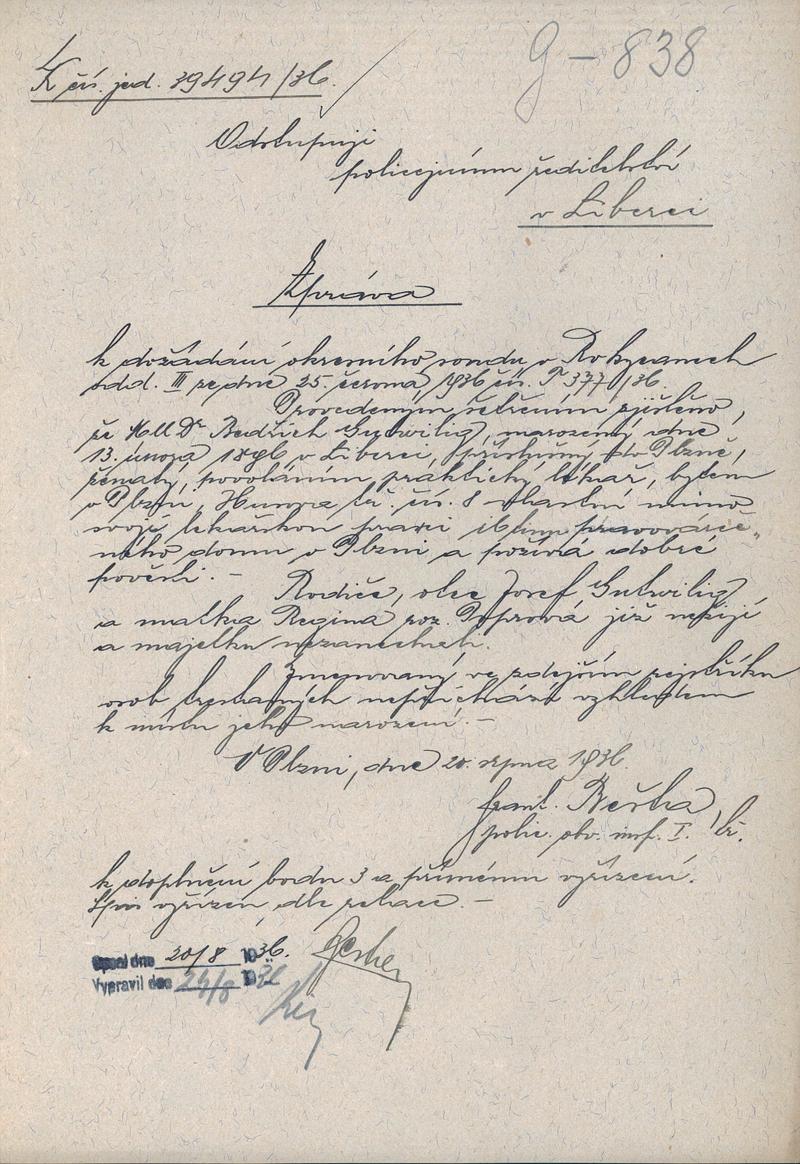 G - 838
K čís. jed. 39494/36.
Odstupuji
policejnímu ředitelství
v Liberci
Zpráva
k dožádání okresního soudu v Rokycanech
odd. III ze dne 25. června 1936 čís. T 377/36.
Provedeným šetřením zjištěno,
že MUDr Bedřich Gutwillig, narozený dne
13. února 1896 v Liberci, příslušný do Plzně,
ženatý, povoláním praktický lékař, bytem
v Plzni, Husova tř. čís. 8 vlastní mimo
svoji lékařskou praxi pravováreč„
ného domu v Plzni a požívá dobré
pověsti. -
Rodiče, otec Josef Gutwillig
a matka Regina roz. již nežijí
a majetku nezanechali.
Jmenovaný ve zdejším rejstříku
osob trestaných nepřichází vzhledem
k místu jeho narození. -
V Plzni, dne 20. srpna 1936.
frant.
polic. obv. insp. I. tř.
k doplnění bodu 3 a přímému vyřízení.
Spis vyřízen, dle relace. -
dne 20/8 1936.
Vypravil dne 24/8 1936